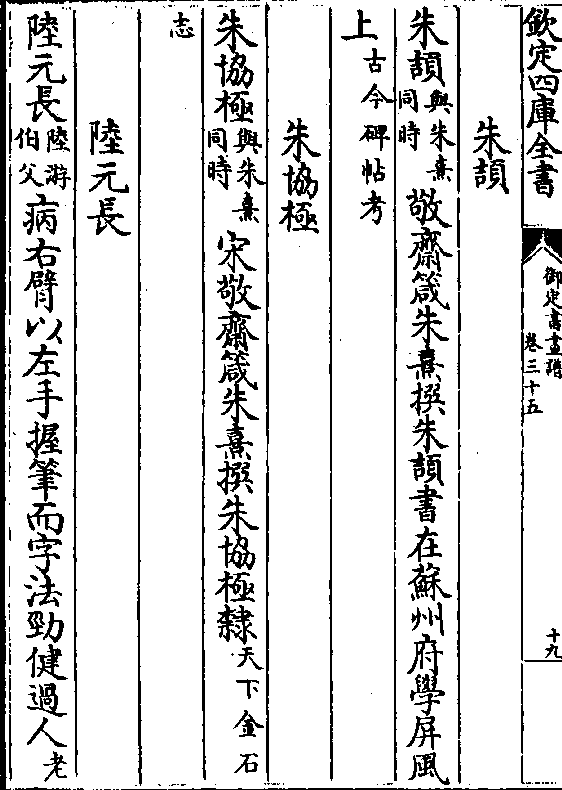 欽定四庫全書
御定書畫譜
卷三十五
十九
朱頡
朱頡與朱熹同時敬齋箴朱熹撰朱頡書在蘇州府學屏風
上古今碑帖考
朱協極
朱協極與朱熹同時宋敬齋箴朱熹撰朱協極隸天下金石
志
陸元長
陸元長陸游伯父病右臂以左手握筆而字法勁健過人老